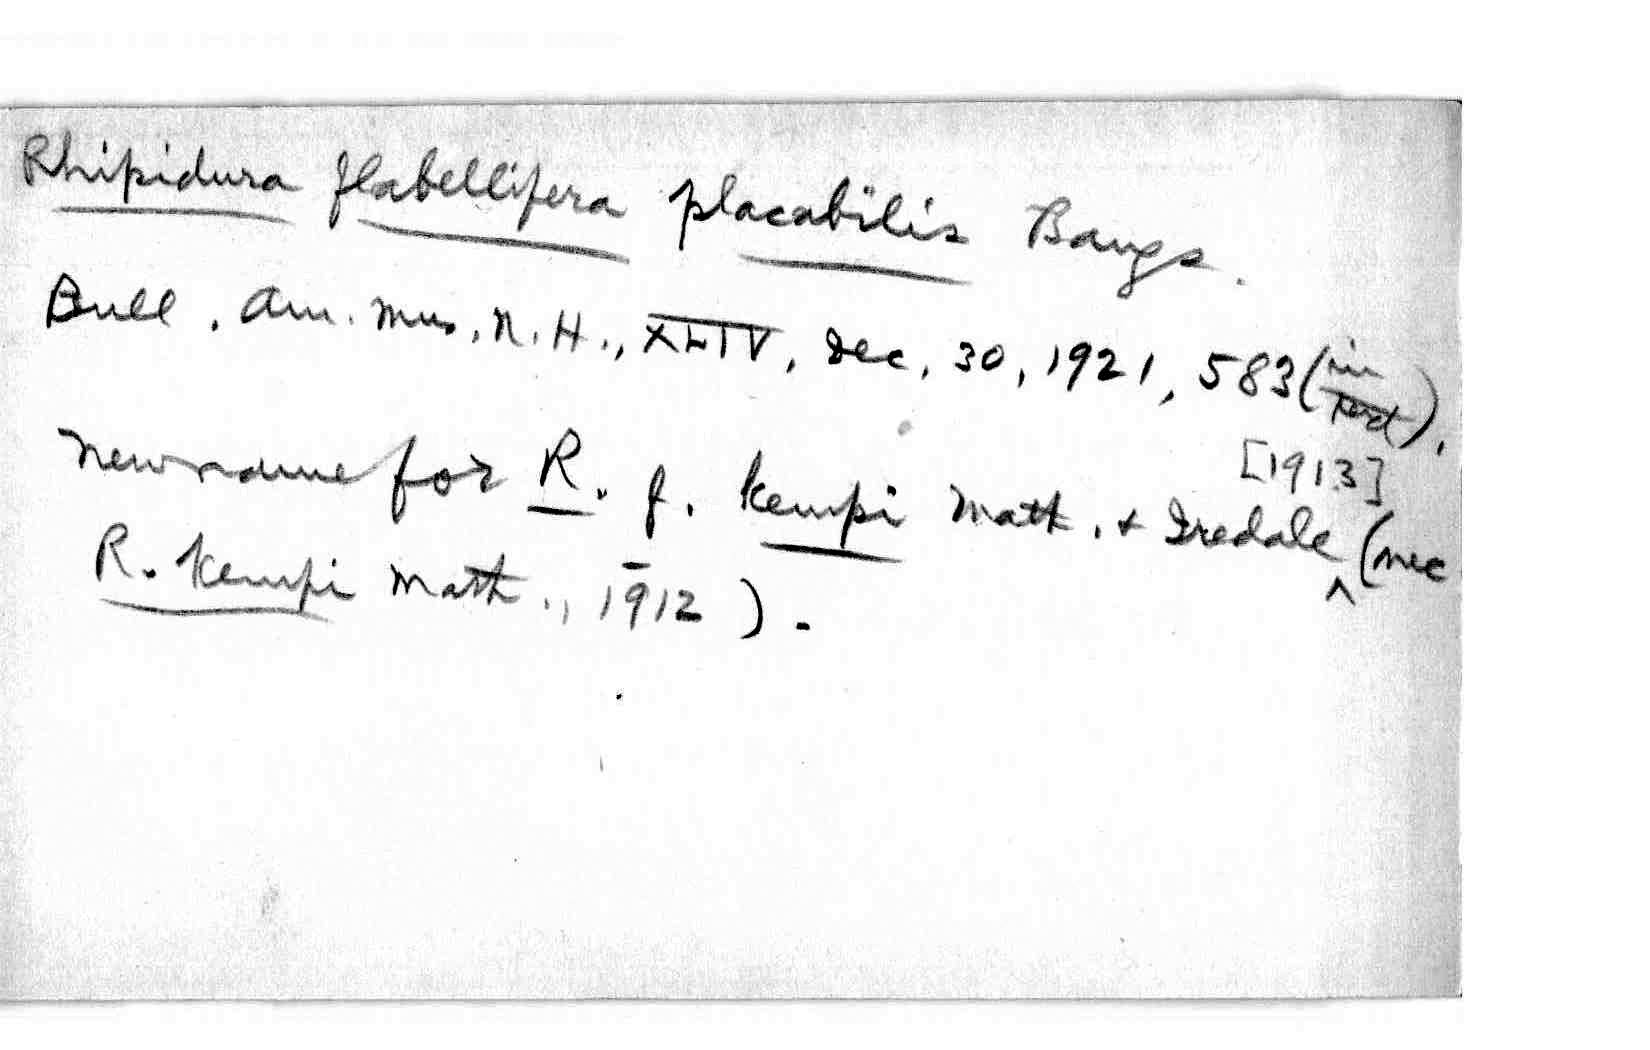 Rhipidura flabellifera placabilis Bangs.
Bull. Am. Mus. N. H., XLIV, Dec, 30, 1921, 583 (in text).
New name for R. f. kempi Math. & Iredale [1913] (nec
R. kempi Math., 1912).